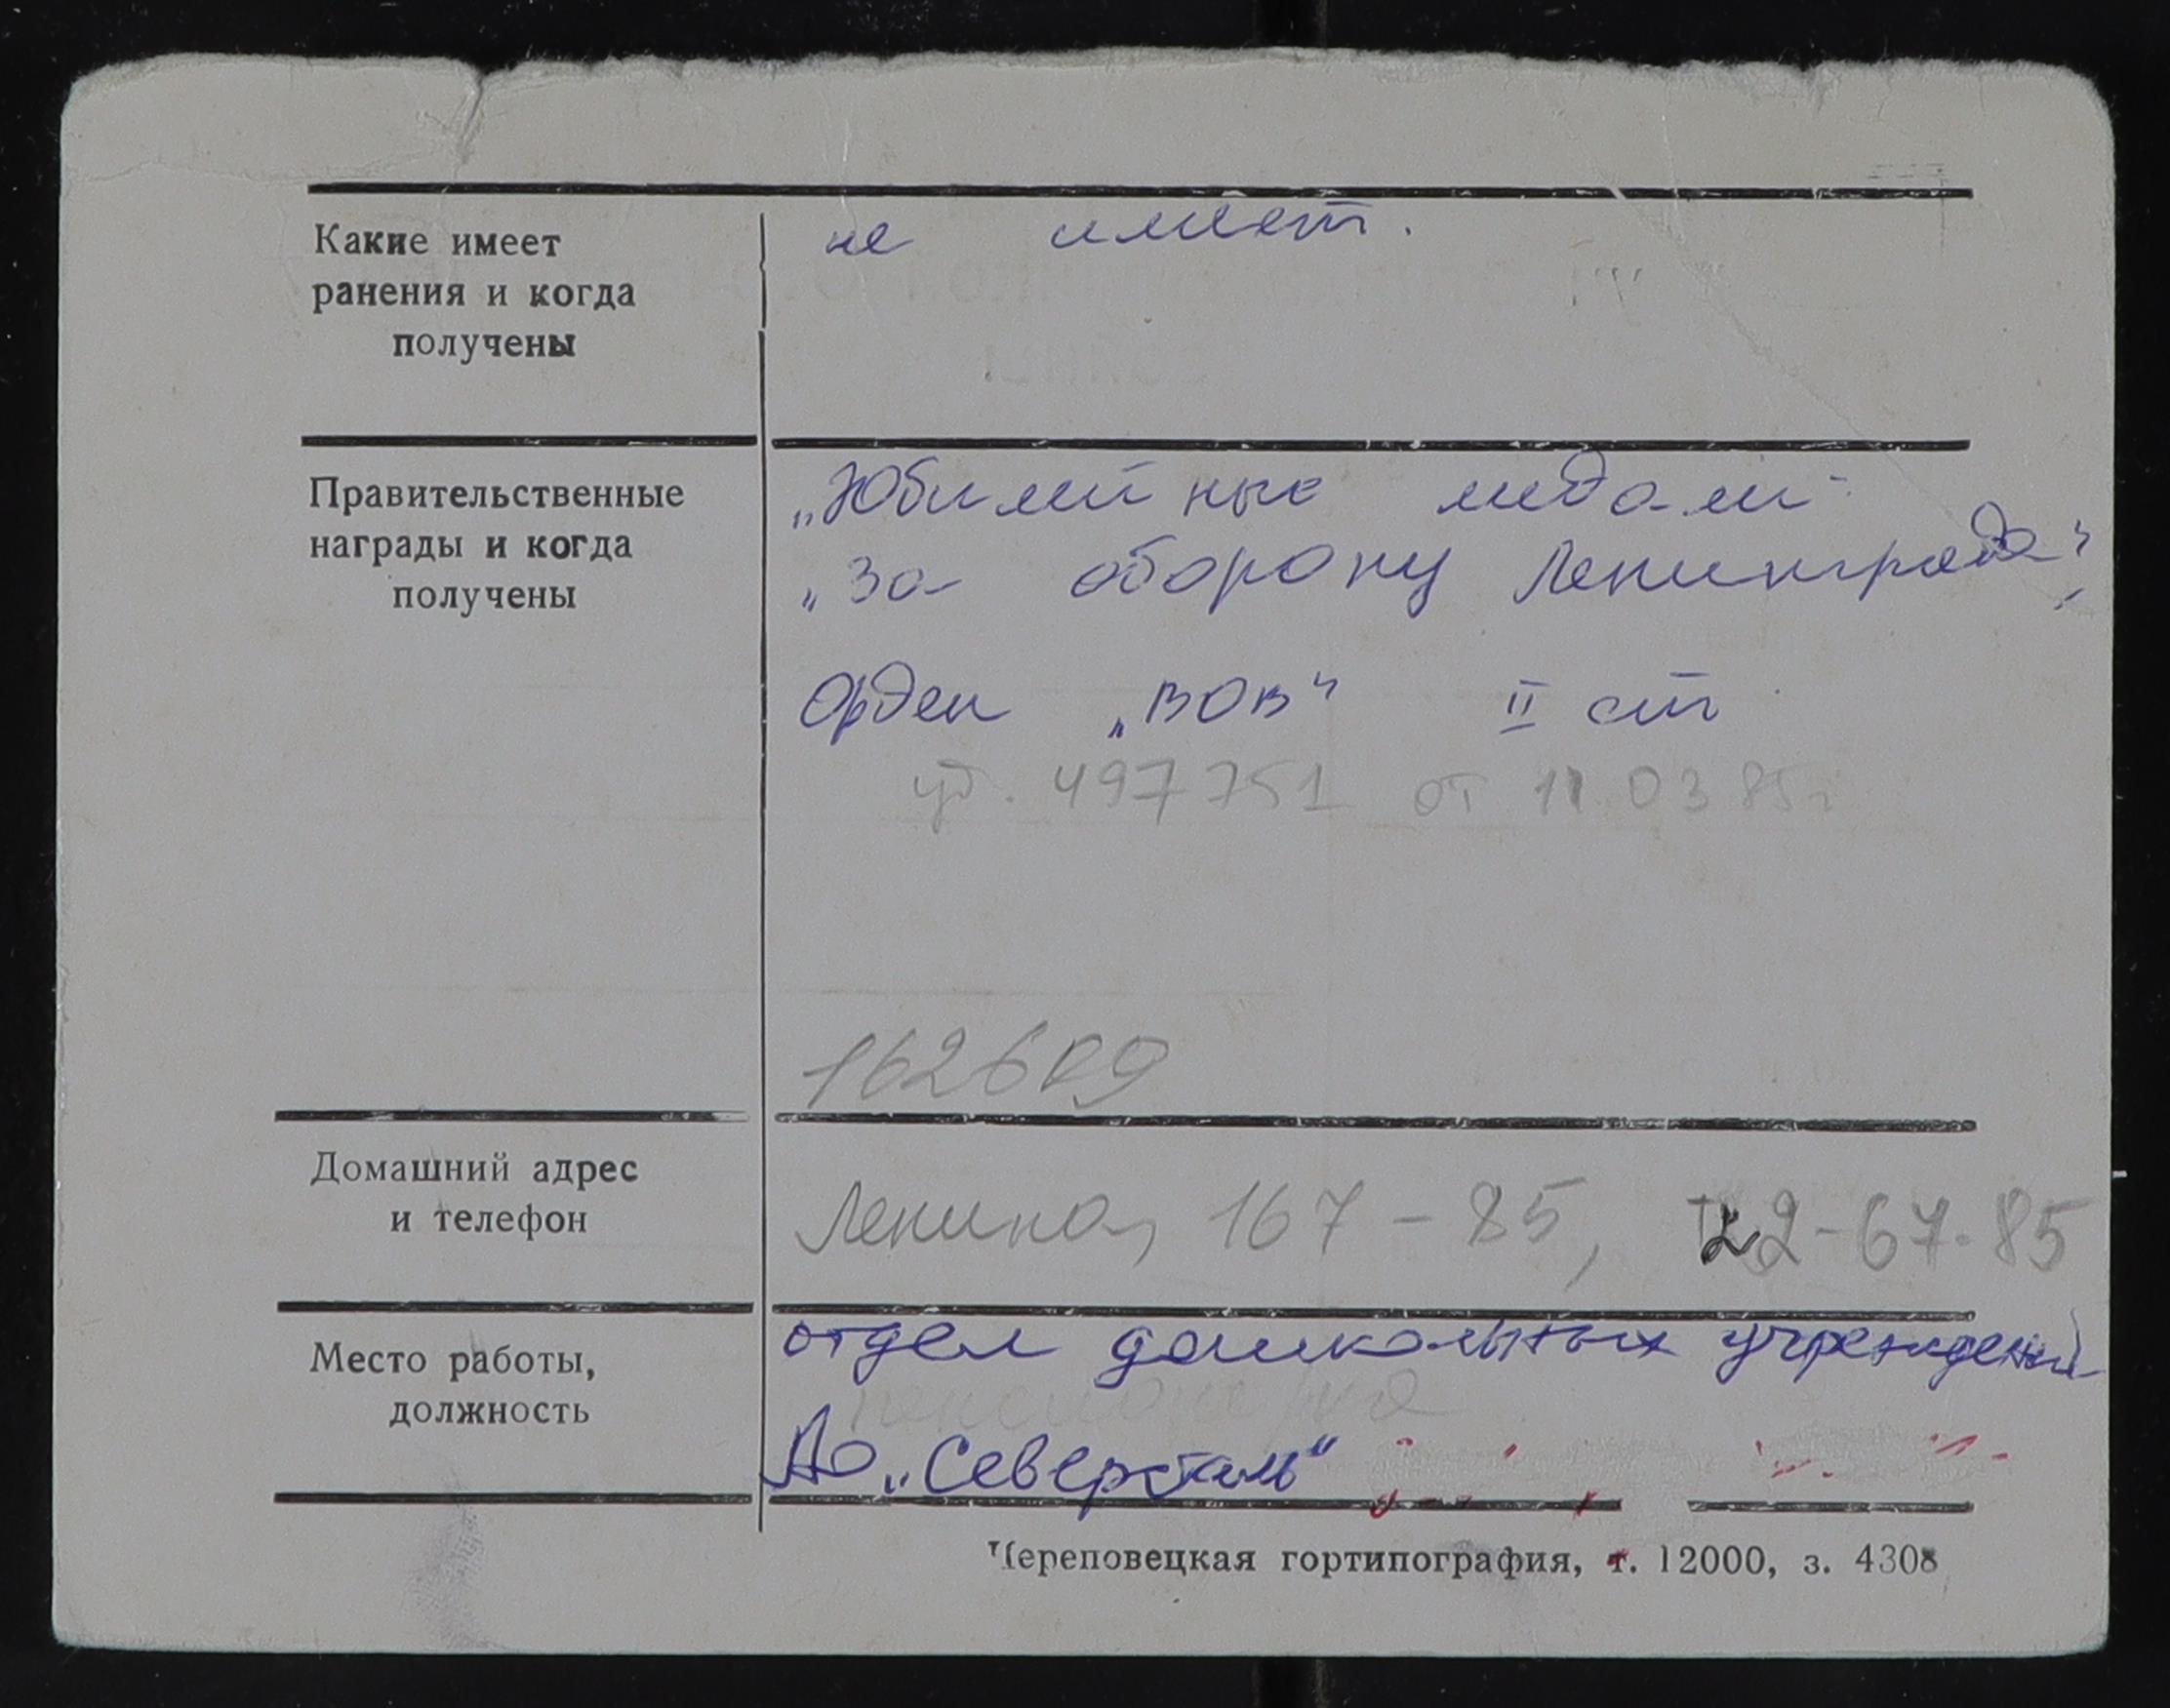 Какие имеет
ранения и когда
получены
не имеет.
Правительственные
награды и когда
получены
„Юбилейные медали
„За оборону Ленинграда",
Орден „ВОВ" II ст.
уд. 497751 от 11 03 85г
162609
Домашний адрес
и телефон
Ленина, 167-85, 22-67-85
Место работы,
должность
отдел дошкольных учреждений
пенсионерка
АО „Северсталь"
Череповецкая гортипография, т. 12000, з. 4308